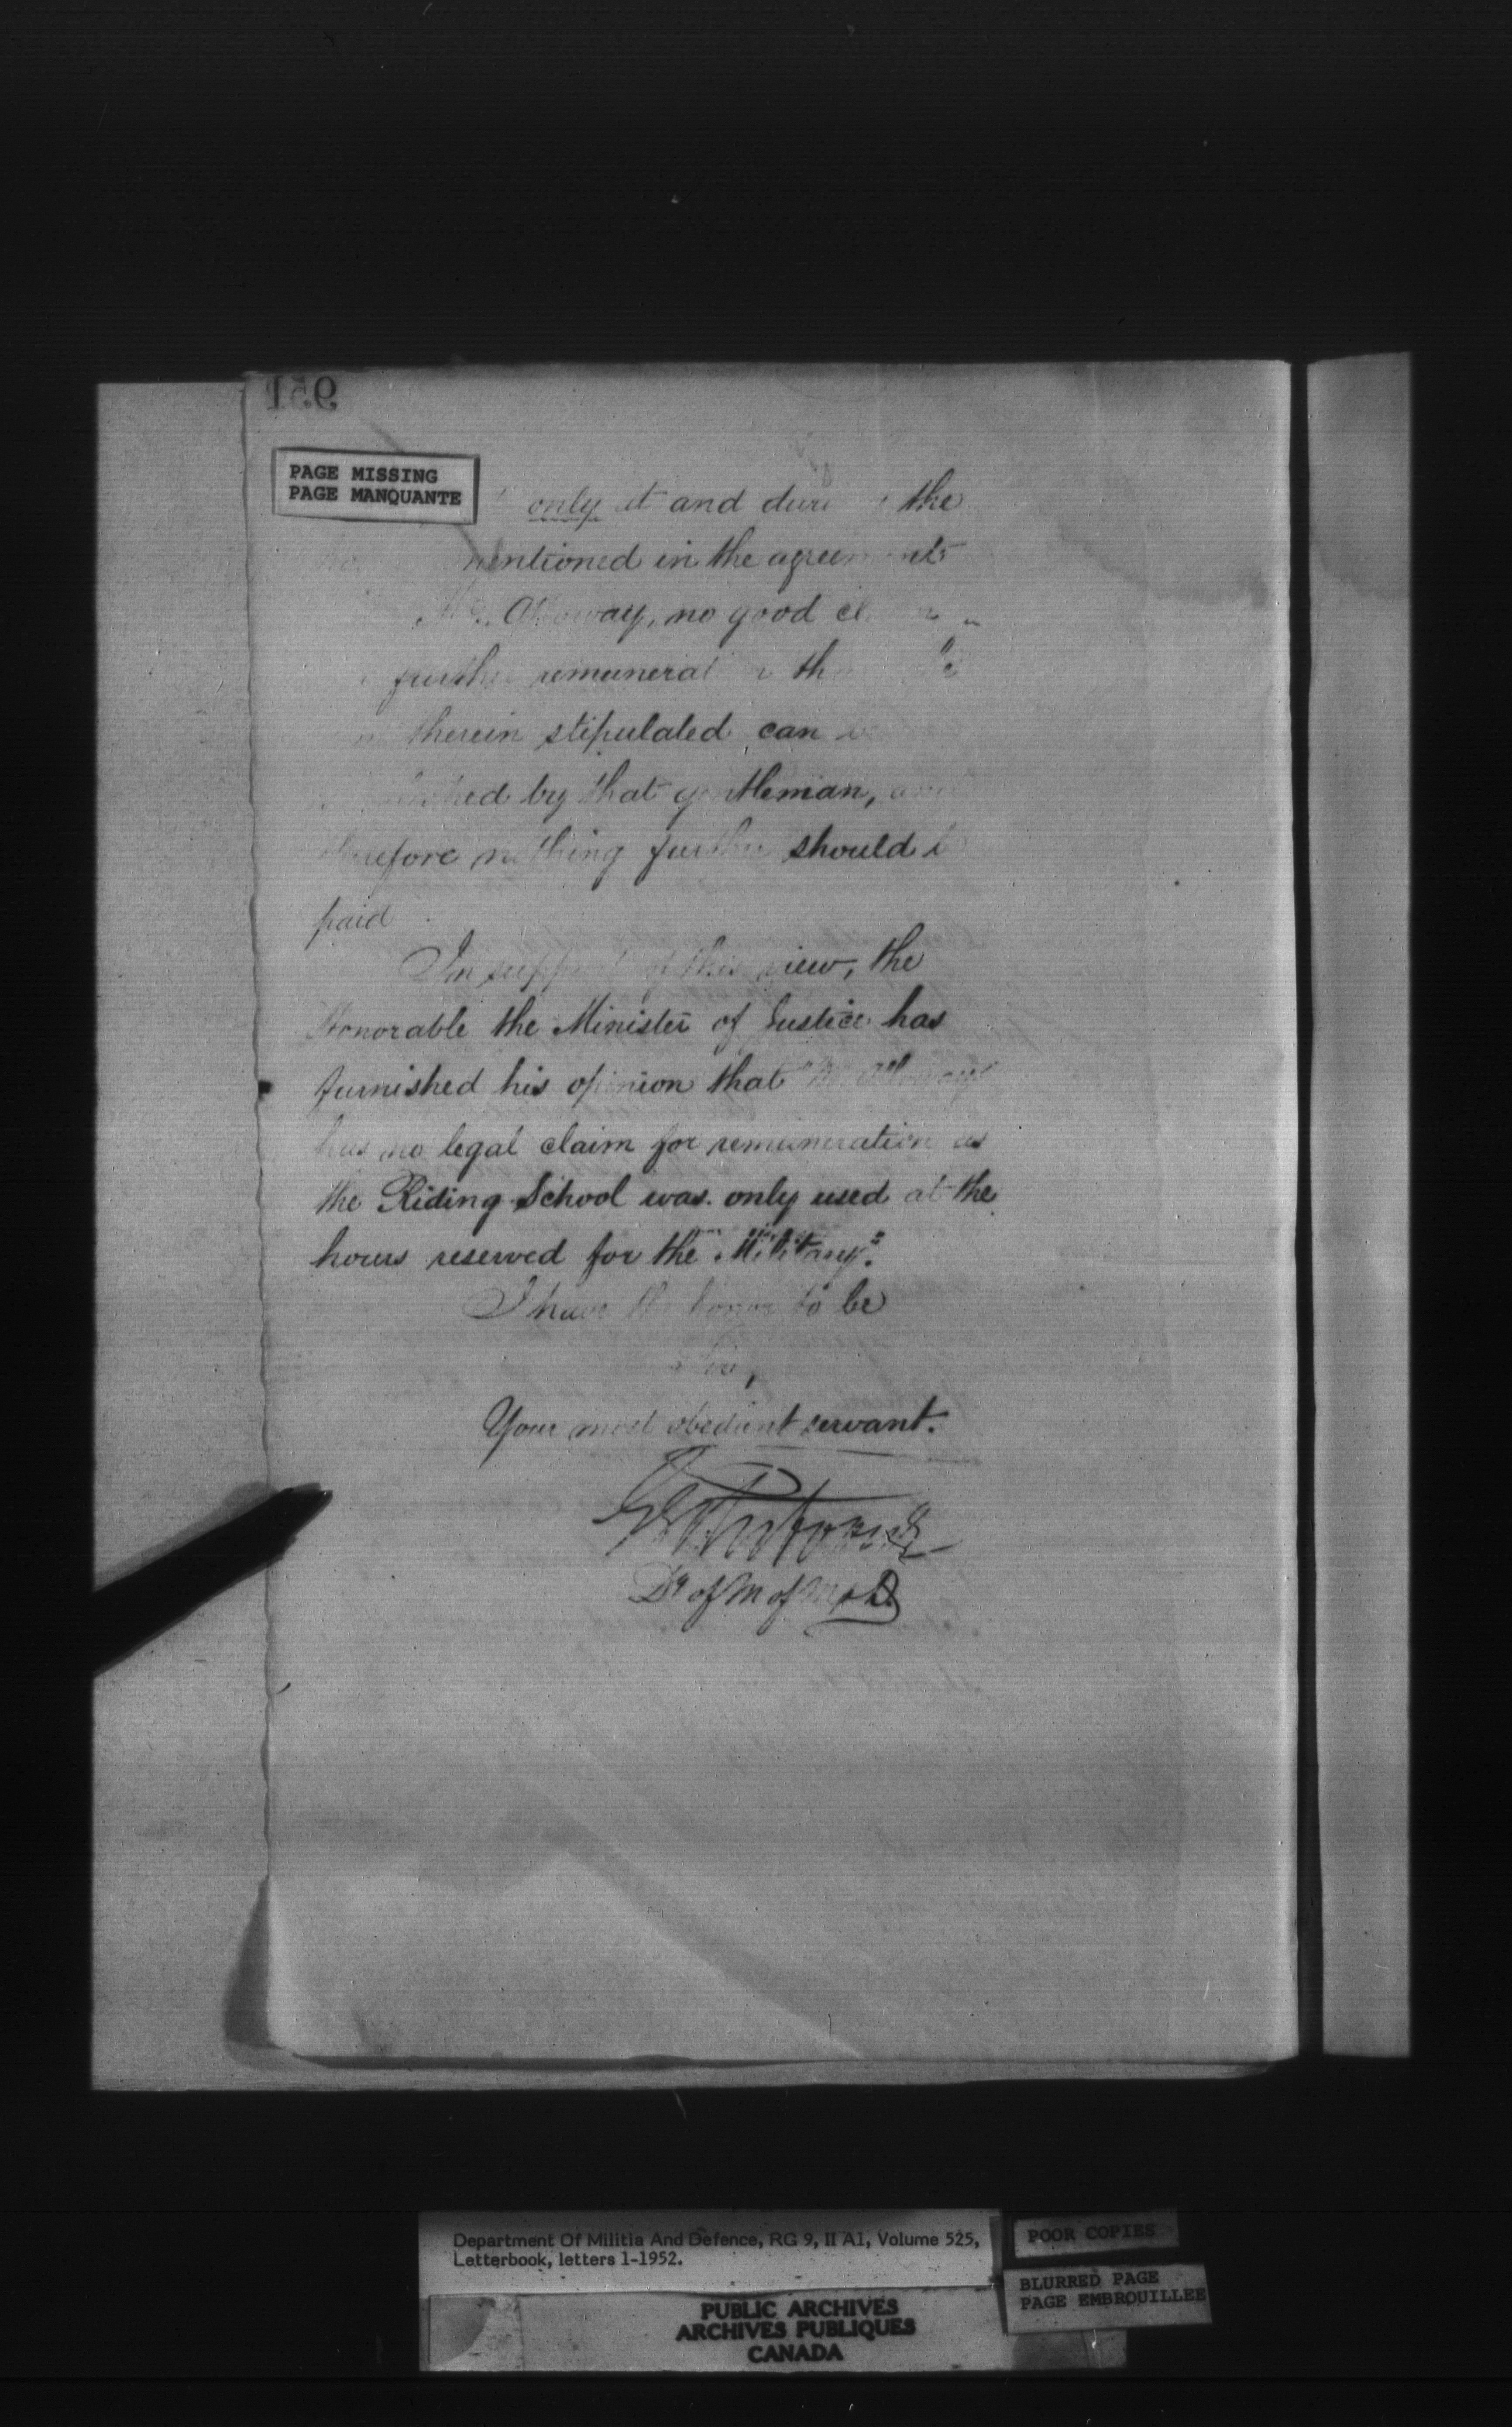 951
PAGE MISSING
PAGE MANQUANTE
only at and during the
mentioned in the agreements
Mr. Alloway, no good claim
further remuneration than
therein stipulated can be
by that gentleman, and
therefore nothing further should be
paid
In support of this view, the
Honorable the Minister of Justice has
furnished his opinion that "Mr Alloway
has no legal claim for remuneration as
the Riding School was only used at the
hours reserved for the Military".
I have the honor to be
Sir,
Your most obedient servant.
of M of M & D
Department Of Militia And Defence, RG 9, II A1, Volume 525,
Letterbook, letters 1-1952.
POOR COPIES
BLURRED PAGE
PAGE EMBROUILLEE
PUBLIC ARCHIVES
ARCHIVES PUBLIQUES
CANADA